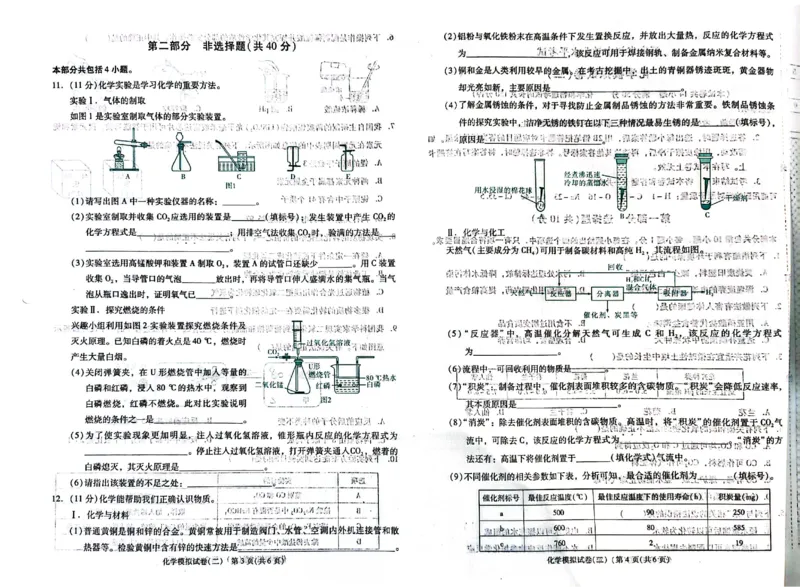 第二部分 非选择题(共40分)
本部分共包括4小题。
11. (11分)化学实验是学习化学的重要方法。
实验Ⅰ. 气体的制取
如图1是实验室制取气体的部分实验装置。
A B C D E
图1
(1)请写出图A中一种实验仪器的名称:______。
(2)实验室制取并收集CO₂应选用的装置是______(填标号);发生装置中产生CO₂的
化学方程式是______;用排空气法收集CO₂时,验满的方法是
______。
(3)实验室选用高锰酸钾和装置A制取O₂,装置A的试管口还缺少______。用C装置
收集O₂,当导管口的气泡______放出时,再将导管口伸入盛满水的集气瓶。当气
泡从瓶口逸出时,证明氧气已______。
实验Ⅱ. 探究燃烧的条件
兴趣小组利用如图2实验装置探究燃烧条件及
灭火原理。已知白磷的着火点是40 ℃,燃烧时
产生大量白烟。
(4)关闭弹簧夹,在U形燃烧管中加入等量的
白磷和红磷,浸入80 ℃的热水中,观察到
白磷燃烧,红磷不燃烧。此对比实验说明
燃烧的条件之一是______。
过氧化氢溶液
CO₂
U形
燃烧管
二氧化锰
红磷
80 ℃热水
白磷
图2
(5)为了使实验现象更加明显,注入过氧化氢溶液,锥形瓶内反应的化学方程式为
______。停止注入过氧化氢溶液,打开弹簧夹通入CO₂,燃着的
白磷熄灭,其灭火原理是______。
(6)请指出该装置的不足之处:______。
12. (11分)化学能帮助我们正确认识物质。
Ⅰ. 化学与材料
(1)普通黄铜是铜和锌的合金。黄铜常被用于制造阀门、水管、空调内外机连接管和散
热器等。检验黄铜中含有锌的快速方法是______。
化学模拟试卷(二) 第3页(共6页)
(2)铝粉与氧化铁粉末在高温条件下发生置换反应,并放出大量热,反应的化学方程式
为______,该反应可用于焊接钢轨、制备金属纳米复合材料等。
(3)铜和金是人类利用较早的金属,在考古挖掘中,出土的青铜器锈迹斑斑,黄金器物
却光亮如新,主要原因是______。
(4)了解金属锈蚀的条件,对于寻找防止金属制品锈蚀的方法非常重要。铁制品锈蚀条
件的探究实验中,洁净无锈的铁钉在以下三种情况最易生锈的是______(填标号),
原因是______。
用水浸湿的棉花球
经煮沸迅速
冷却的蒸馏水
干燥剂
B C
Ⅱ. 化学与化工
天然气(主要成分为CH₄)可用于制备碳材料和高纯H₂,其流程如图。
回收
天然气 反应器 分离器 H₂和CH₄ 混合气体 吸附器 H₂
催化剂、炭黑等
(5)“反应器”中,高温催化分解天然气可生成C和H₂,该反应的化学方程式
为______。
(6)流程中,可回收利用的物质是______。
(7)“积炭”:制备过程中,催化剂表面堆积较多的含碳物质。“积炭”会降低反应速率,
其本质原因是______。
(8)“消炭”:除去催化剂表面堆积的含碳物质。高温时,将“积炭”的催化剂置于CO₂气
流中,可除去C,该反应的化学方程式为______,“消炭”的方
法还有:高温下将催化剂置于______(填化学式)气流中。
(9)不同催化剂的相关参数如下表,分析可知,最合适的催化剂为______(填标号)。
催化剂标号 最佳反应温度(℃) 最佳反应温度下的使用寿命(h) 积炭量(mg)
a 500 90 250
b 600 80 585
c 760 2 19
化学模拟试卷(二) 第4页(共6页)